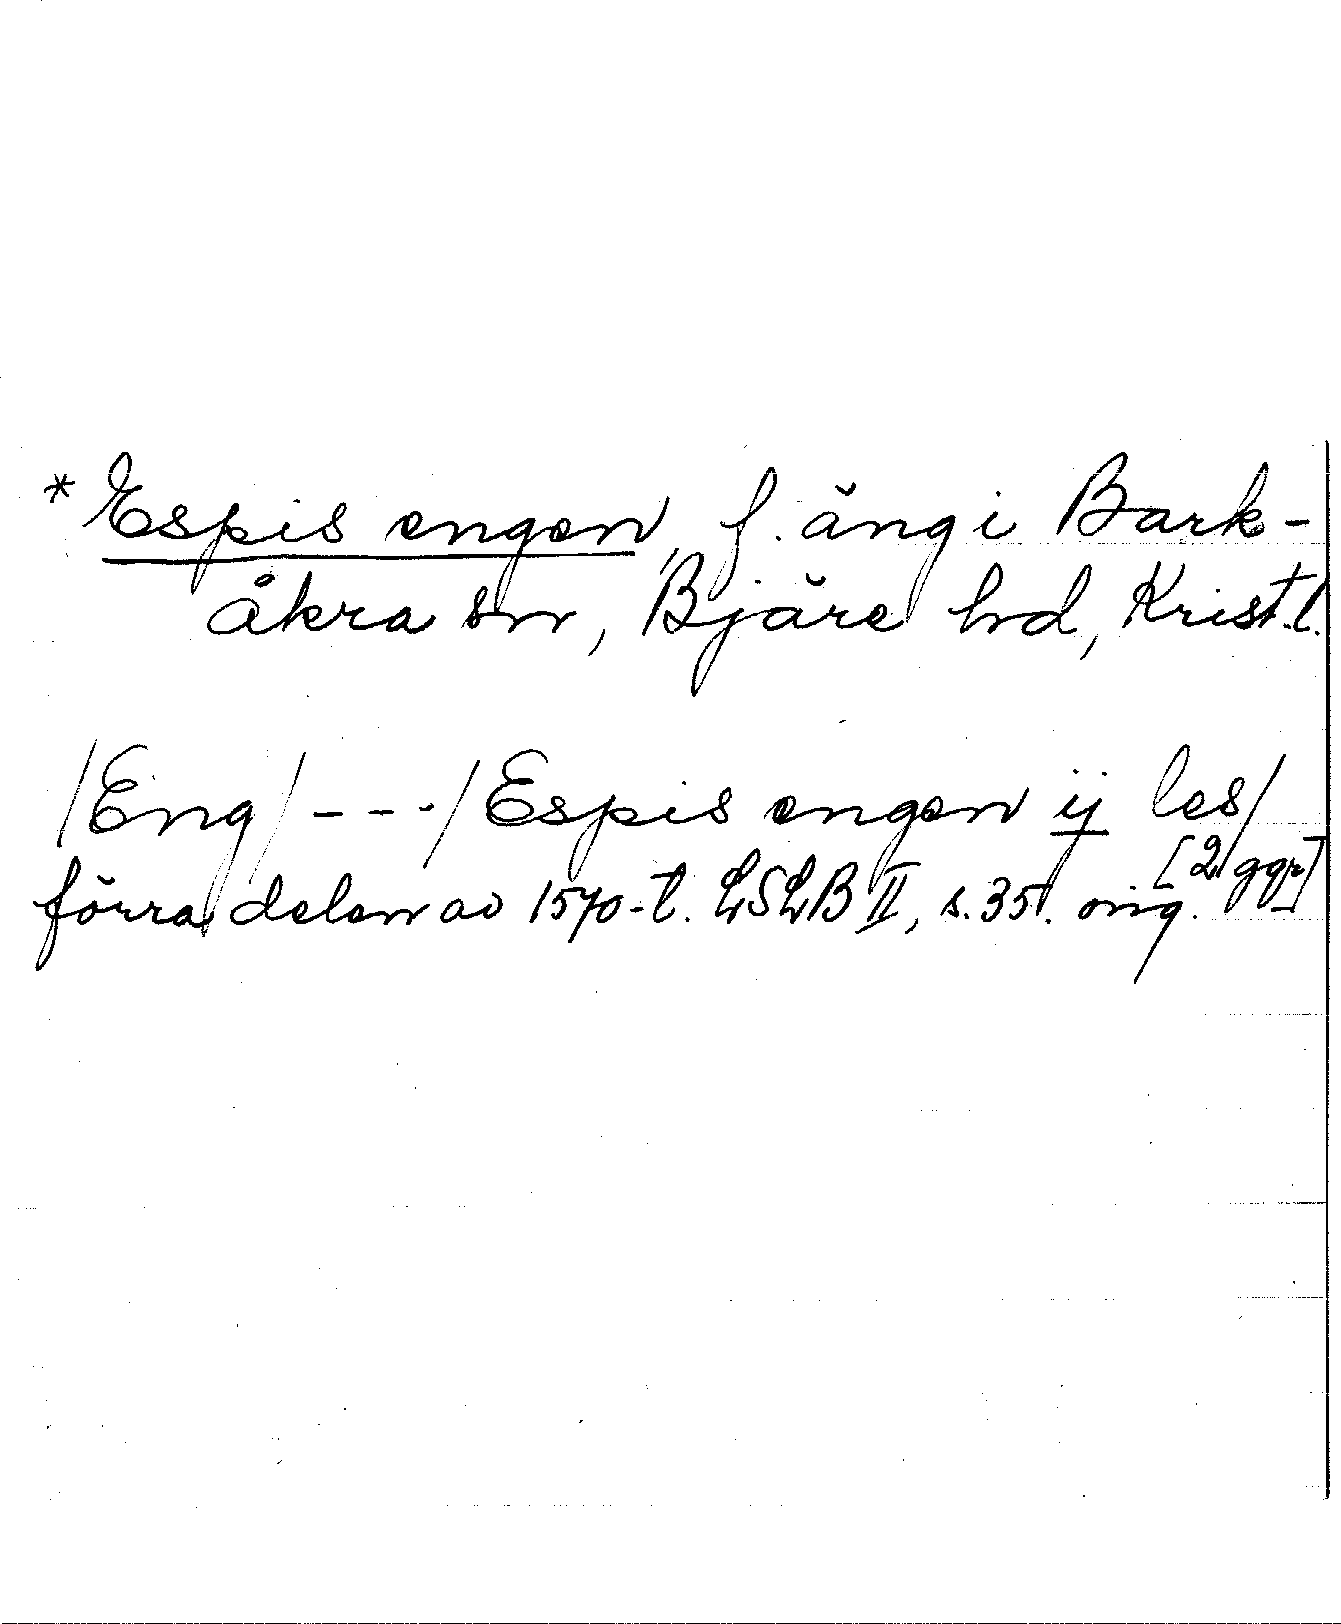 *Espis engen, f. äng i Bark-
åkra sn, Bjäre hd, Krist. l.
/Eng/ - - - / Espis engen ij les/
[2 ggr]
förra delen av 1570-t. LSLB II, s. 351. orig.